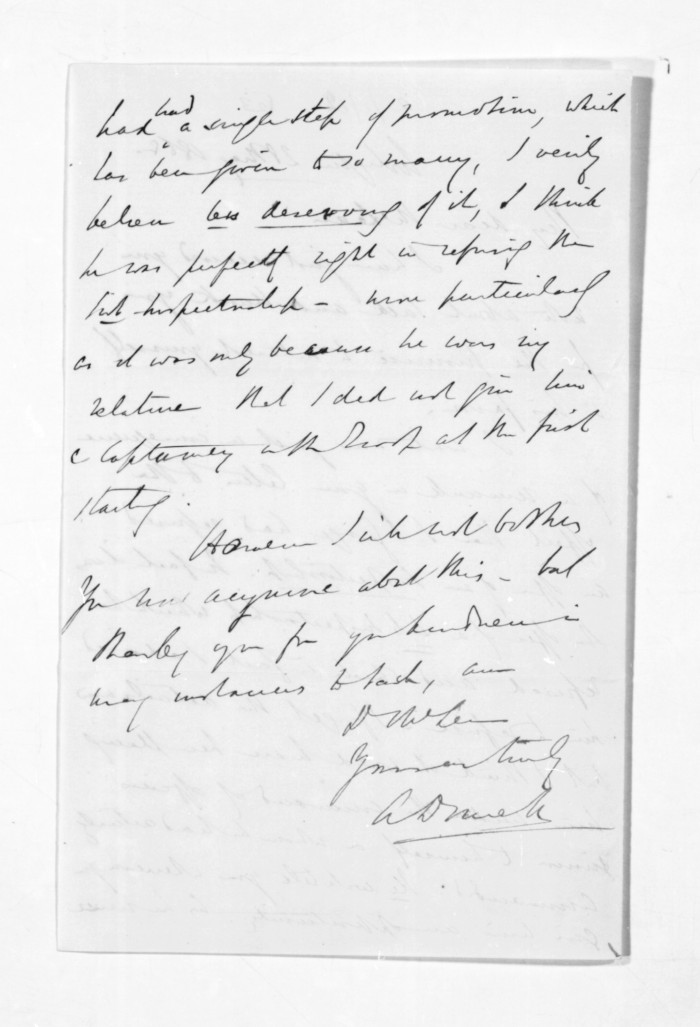 had
had a single step of promotion, which
has been given to so many, I verily
believe less deserving of it, I think
he was perfectly right in refusing the
Sub-inspectorship - more particularly
as it was only because he was my
relative that I did not give him
a Captaincy at the first
starting.
However I will not bother
you any more about this - but
thanking you for your kindness in
many instances to, am
D McLean
Yours very truly